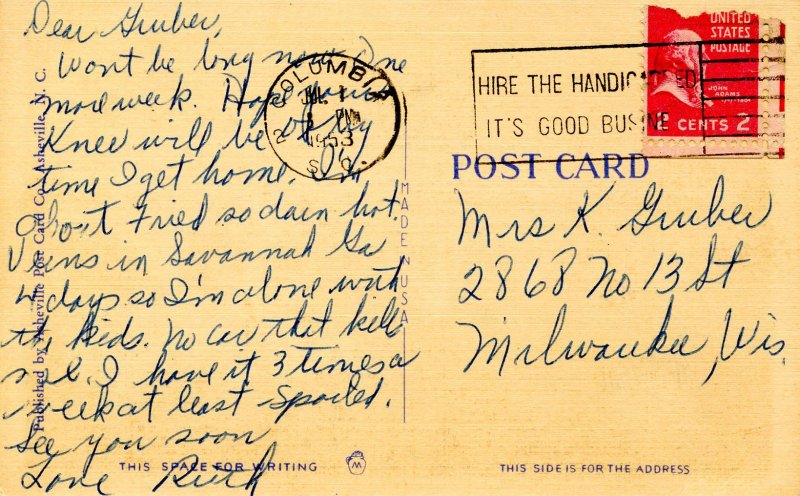 Dear Gruber,
Won't be long now. One
more week. Hope your
Knee will be ok by
time I get home. I'm
about Fried so darn hot.
Verns in Savannah Ga
4 days so I'm alone with
the kids. No car that kills
me. I have it 3 times a
week at least - Spoiled.
See you soon
Love Ruth
Published by Asheville Post Card Co., Asheville, N. C.
MADE IN USA
THIS SPACE FOR WRITING
COLUMBIA
JUL 1
PM
1953
S. C.
HIRE THE HANDICAPPED
IT'S GOOD BUSINE
UNITED
STATES
POSTAGE
JOHN
ADAMS
CENTS 2
POST CARD
Mrs K. Gruber
2868 No 13 St
Milwaukee, Wis.
THIS SIDE IS FOR THE ADDRESS